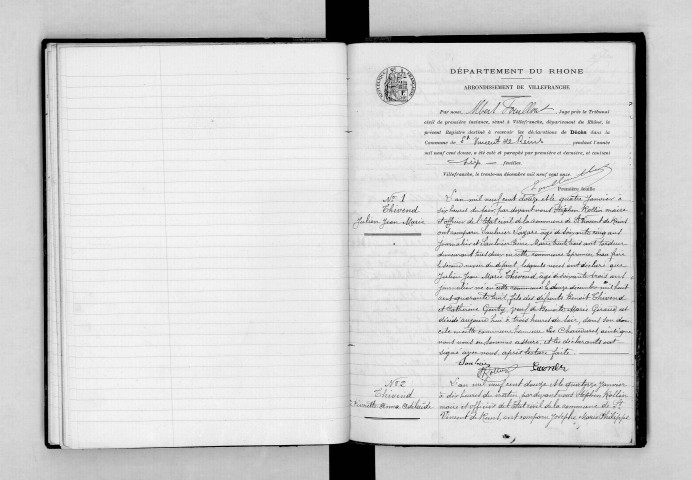 DÉPARTEMENT DU RHONE
ARRONDISSEMENT DE VILLEFRANCHE
Par nous, Albert Fouillous Juge près le Tribunal
civil de première instance, séant à Villefranche, département du Rhône, le
présent Registre destiné à recevoir les déclarations de Décès dans la
Commune de St Vincent de Reins pendant l'année
mil neuf cent douze, a été coté et paraphé par première et dernière, et contient
feuilles.
Villefranche, le trente-un décembre mil neuf cent onze
Première feuille
No 1
Thivend
Julien Jean Marie
L'an mil neuf cent douze et le quatre janvier à
six heures du soir, par devant nous Stéphen Rollin maire
et officier de l'Etat civil de la commune de St Vincent de Reins
ont comparu Lazare âgé de soixante cinq ans
journalier et trente huit ans tisseur
demeurant tous deux en cette commune le premier beau frère
le second neveu du défunt, lesquels nous ont déclaré que
Julien Jean Marie Thivend âgé de soixante trois ans
journalier né en cette commune le douze décembre mil huit
cent quarante huit, fils des défunts Benoit Thivend
et Catherine veuf de Benoite Marie Giraud est
décédé aujourd'hui à trois heures du soir, dans son domi
cile en cette commune hameau Les ainsi que
nous nous en sommes assuré, et les déclarants ont
signé avec nous, après lecture faite.
Rollin
No 2
Thivend
Anna Adélaïde
L'an mil neuf cent douze et le quatorze janvier
à dix heures du matin par devant nous Stéphen Rollin
maire et officier de l'Etat civil de la commune de St
Vincent de Reins, ont comparu Joseph Marie Philippe